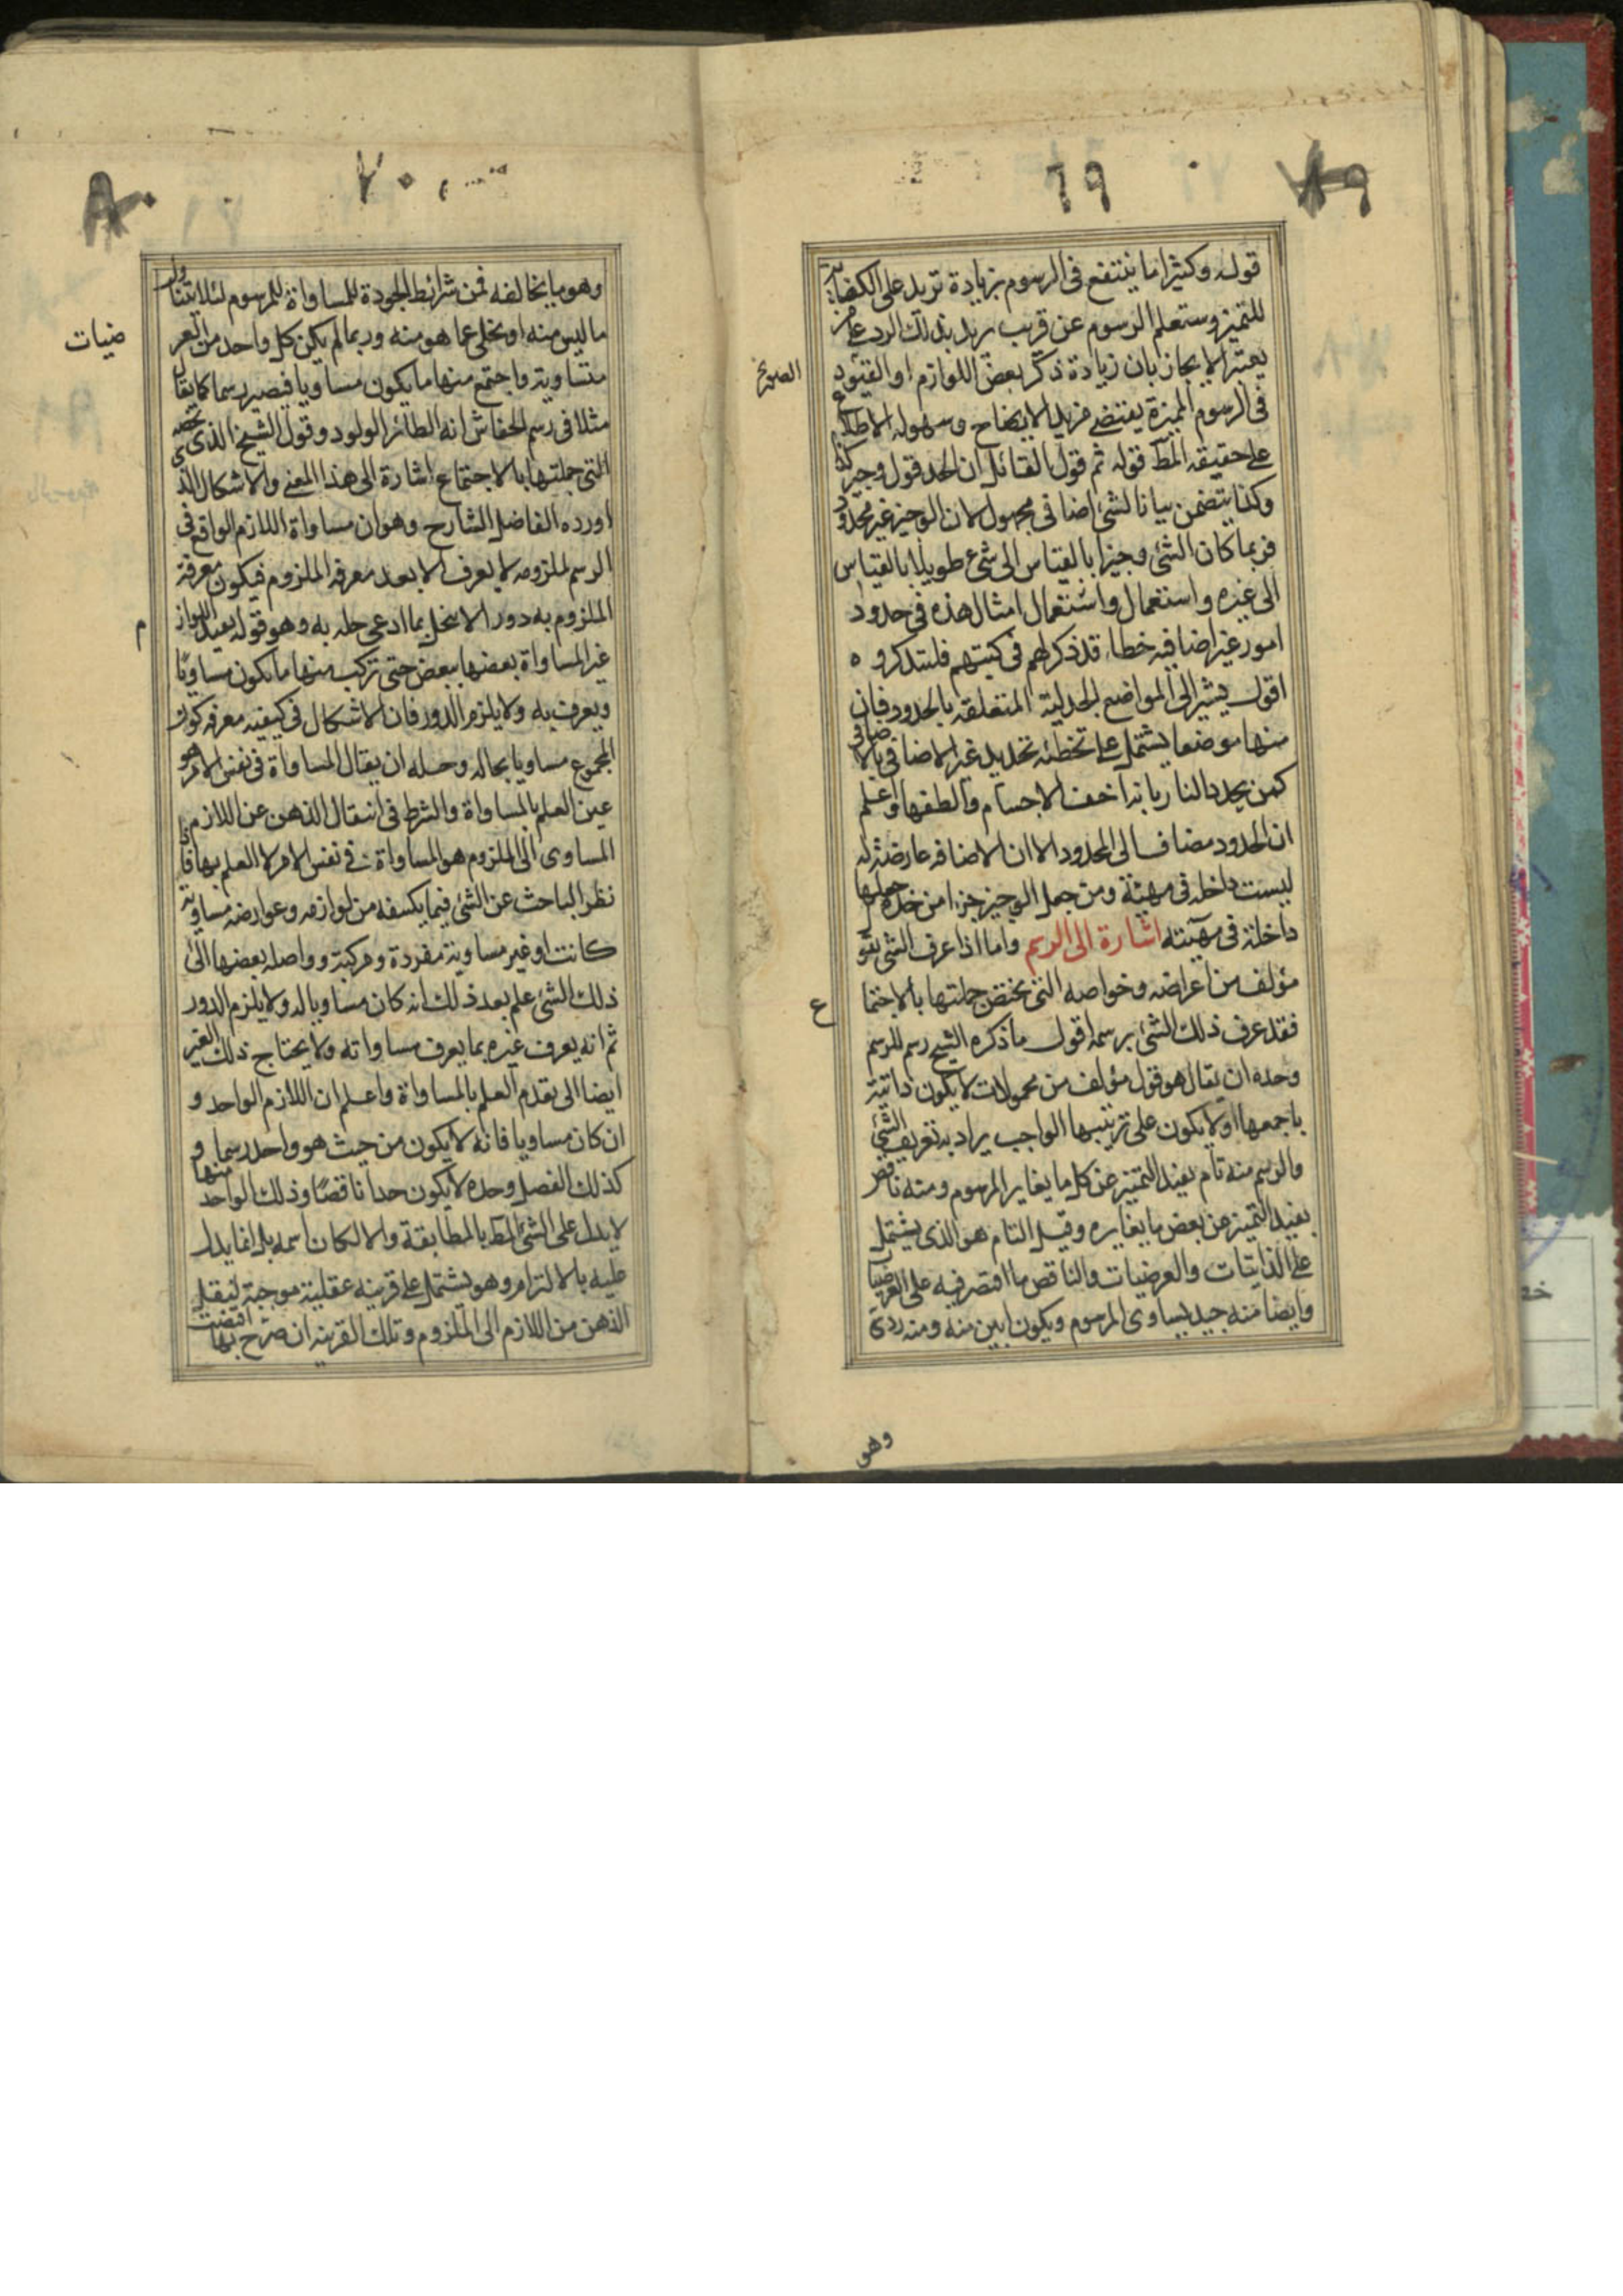 ٦٩
٧٩
قوله وكثيرا ما ينتفع فى الرسوم بزيادة تزيد على الكفاية
للتميز وستعلم الرسوم عن قريب يريد بذلك الرد على من
يعتبر الايجاز بان زيادة ذكر بعض اللوازم او القيود
فى الرسوم المميزة يقتضے مزيد الايضاح وسهولة الاطلاع
على حقيقة المط قوله ثم قول القائل ان الحد قول وجيز كذا
وكذا يتضمن بيانا لشئ اضافى مجهول لان الوجيز غير محدود
فربما كان الشئ وجيزا بالقياس الى شئ طويلا بالقياس
الى غيره واستعمال واستعمال امثال هذه فى حدود
امور غير اضافيه خطاء قد ذكر لهم فى كتبهم فليتذكروه
اقول يشير الى المواضع الجدلية المتعلقه بالحدود فان
منها موضعا يشتمل على تخطئه تحديد غير الاضافى بالاضافى
كمن يحدد النار بانه اخف الاجسام والطفها واعلم
ان الحدود مضاف الى المحدود الا ان الاضافه عارضة له
ليست داخله فى مهيته ومن جعل الوجيز جزءا من حده جعلها
داخلة فى مهيته اشارة الى الرسم واما اذا عرف الشئ بقو
مؤلف من اعراضه وخواصه التى تختص جملتها بالاجتما
ع
فقد عرف ذلك الشئ برسمه اقول ما ذكره الشيخ رسم للرسم
وحده ان يقال هو قول مؤلف من محمولات لا يكون ذاتية
باجمعها او لا يكون على ترتيبها الواجب يراد به تعريف الشئ
والرسم منه تام يفيد التميز عن كل ما يغاير المرسوم ومنه ناقص
يفيد التميز عن بعض ما يغايره وقيل التام هو الذى يشتمل
على الذاتيات والعرضيات والناقص ما اقتصر فيه على العرضيات
وايضا منه جيد يساوى المرسوم ويكون ابين منه ومنه ردى
وهو
٧٠
٨٠
وهو ما يخالفه فمن شرائط الجودة المساواة للمرسوم لئلا يتناول
ما ليس منه او يخلى عما هو منه وربما لم يكن كل واحد من العر
ضيات
متساوية واجتمع منها ما يكون مساويا فيصير رسما كما يقال
مثلا فى رسم الخفاش انه الطائر الولود وقول الشيخ الذى يخصه
التى جملتها بالاجتماع اشارة الى هذا المعنى والاشكال الذى
اورده الفاضل الشارح وهو ان مساواة اللازم الواقع فى
الرسم لملزومه لا يعرف الا بعد معرفه الملزوم فيكون معرفة
الملزوم به دور الا ينحل بما ادعى حله به وهو قوله يقيد اللواز
م
غير المساواة بعضها ببعض حتى تركب منها ما يكون مساويا
ويعرف به ولا يلزم الدور فان الاشكال فى كيفيه معرفه كون
المجموع مساويا بحاله وحله ان يقال المساواة فى نفس الامر هو
غير العلم بالمساواة والشرط فى انتقال الذهن عن اللازم
المساوى الى الملزوم هو المساواة فى نفس الامر لا العلم بها فاذا
نظر الباحث عن الشئ فيما يكسفه من لوازمه وعوارضه مساوية
كانت او غير مساوية مفردة ومركبة وواصله بعضها الى
ذلك الشئ علم بعد ذلك انه كان مساويا له ولا يلزم الدور
ثم انه يعرف غيره بما يعرف مساواته ولا يحتاج ذلك الغير
ايضا الى تقدم العلم بالمساواة واعلم ان اللازم الواحد و
ان كان مساويا فانه لا يكون من حيث هو واحد رسما و
كذلك الفصل وحده لا يكون حدا ناقصا وذلك الواحد منها
لا يدل على الشئ المط بالمطابقة والا لكان اسمه بل انما يدل
عليه بالالتزام وهو يشتمل على قرينه عقلية موجبة لنقل
الذهن من اللازم الى الملزوم وتلك القرينه ان صرح بها اقتضت